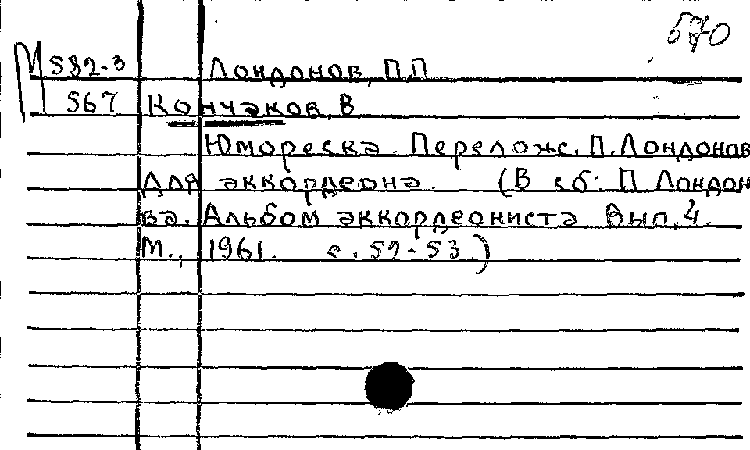 570
М 582-3 Лондонов, П.П
567 Кончаков, В
Юмореска. Перелож. П. Лондонов
для аккордеона. (В сб: П Лондон
ва. Альбом аккордеониста Вып. 4
М., 1961. с. 52-53.)